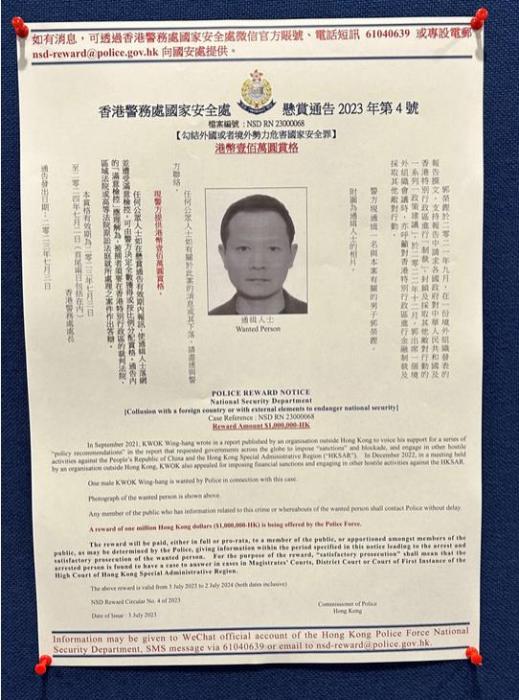 如有消息，可透過香港警務處國家安全處微信官方賬號、電話短訊 61040639 或專設電郵
nsd-reward@police.gov.hk 向國安處提供。
香港警務處國家安全處 懸賞通告 2023 年第 4 號
檔案編號：NSD RN 23000068
【勾結外國或者境外勢力危害國家安全罪】
港幣壹佰萬圓賞格
郭榮鏗於二零二一年九月，在一份境外組織發表的
報告撰文，支持報告中請求各國政府對中華人民共和國及
香港特別行政區進行「制裁」、封鎖及採取其他敵對行動的
一系列「政策建議」。於二零二二年十二月，郭出席一個境
外組織會議時，亦呼籲對香港特別行政區進行金融制裁及
採取其他敵對行動。
警方現通緝一名與本案有關的男子郭榮鏗。
附圖為通緝人士的相片。
任何公眾人士如有關於此案的消息或其下落，請盡速與警
方聯絡。
現警方提供港幣壹佰萬圓賞格。
任何公眾人士如在懸賞通告有效期內報訊，使通緝人士落網
並遭滿意檢控，可由警方決定全數獲得或按比例分配賞格。通告內
的「滿意檢控」應理解為，被捕者須要在香港特別行政區的裁判法院、
區域法院或高等法院原訟法庭就所處理之案件作出答辯。
本賞格有效期為二零二三年七月三日
至二零二四年七月二日（首尾兩日包括在內）
香港警務處處長
通告發出日期：二零二三年七月三日
通緝人士
Wanted Person
POLICE REWARD NOTICE
National Security Department
[Collusion with a foreign country or with external elements to endanger national security]
Case Reference : NSD RN 23000068
Reward Amount $1,000,000-HK
In September 2021, KWOK Wing-hang wrote in a report published by an organisation outside Hong Kong to voice his support for a series of
"policy recommendations" in the report that requested governments across the globe to impose "sanctions" and blockade, and engage in other hostile
activities against the People's Republic of China and the Hong Kong Special Administrative Region ("HKSAR"). In December 2022, in a meeting held
by an organisation outside Hong Kong, KWOK also appealed for imposing financial sanctions and engaging in other hostile activities against the HKSAR.
One male KWOK Wing-hang is wanted by Police in connection with this case.
Photograph of the wanted person is shown above.
Any member of the public who has information related to this crime or whereabouts of the wanted person shall contact Police without delay.
A reward of one million Hong Kong dollars ($1,000,000-HK) is being offered by the Police Force.
The reward will be paid, either in full or pro-rata, to a member of the public, or apportioned amongst members of the
public, as may be determined by the Police, giving information within the period specified in this notice leading to the arrest and
satisfactory prosecution of the wanted person. For the purpose of the reward, "satisfactory prosecution" shall mean that the
arrested person is found to have a case to answer in cases in Magistrates' Courts, District Court or Court of First Instance of the
High Court of Hong Kong Special Administrative Region.
The above reward is valid from 3 July 2023 to 2 July 2024 (both dates inclusive)
NSD Reward Circular No. 4 of 2023
Commissioner of Police
Hong Kong
Date of Issue : 3 July 2023
Information may be given to WeChat official account of the Hong Kong Police Force National
Security Department, SMS message via 61040639 or email to nsd-reward@police.gov.hk.